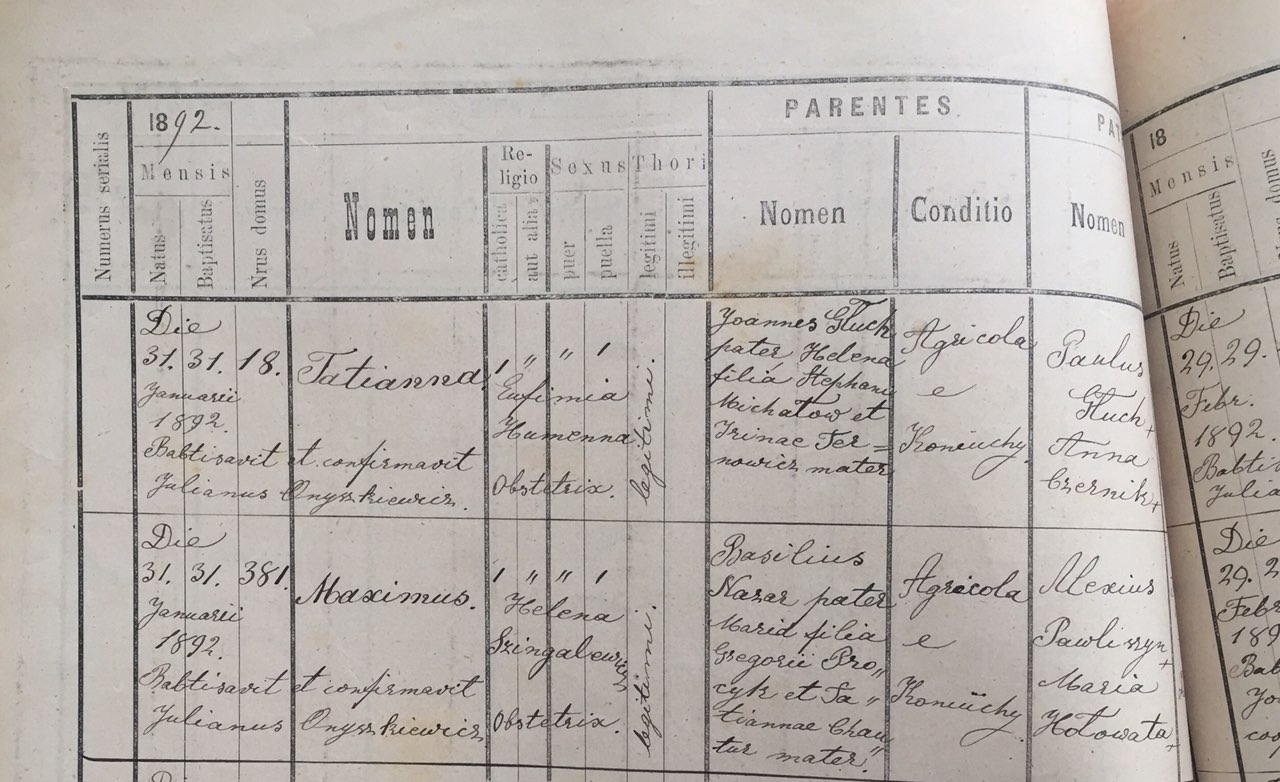 1892.
PARENTES
Numerus serialis
Mensis
Natus
Baptisatus
Nrus domus
Nomen
Religio
catholica
aut alia
Sexus
puer
puella
Thori
legitimi
illegitimi
Nomen
Conditio
Nomen
18
Mensis
Natus
Baptisatus
domus
Die
31. 31. 18.
Januarii
1892.
Babtisavit et confirmavit
Julianus Onyszkiewicz.
Tatianna
1 " " 1
Eufimia
Humenna
Obstetrix.
legitimi.
Joannes Głuch
pater Helena
filia Stephani
Michałow et
Irinae Ter=
nowicz mater
Agricola
e
Koniuchy.
Paulus
Głuch +
Anna
Czernik +
Die
29. 29.
Febr.
1892.
Babti
Julia
Die
31. 31. 381.
Januarii
1892.
Babtisavit et confirmavit
Julianus Onyszkiewicz
Maximus.
1 " " 1
Helena
Obstetrix.
legitimi.
Basilius
Nazar pater
Maria filia
Gregorii Pro„
cyk et Ta„
tiannae Chau„
tur mater.
Agricola
e
Koniuchy.
Alexius
Pawliszyn +
Maria
Hołowata +
Die
29. 2
Febr
189
Bab